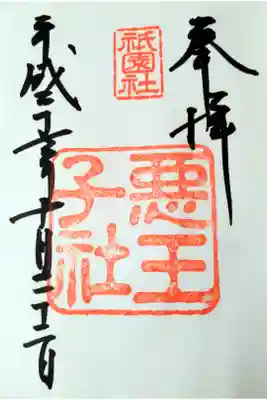 奉拝
祇園社
悪王子社
平成二十 年十月二十 日